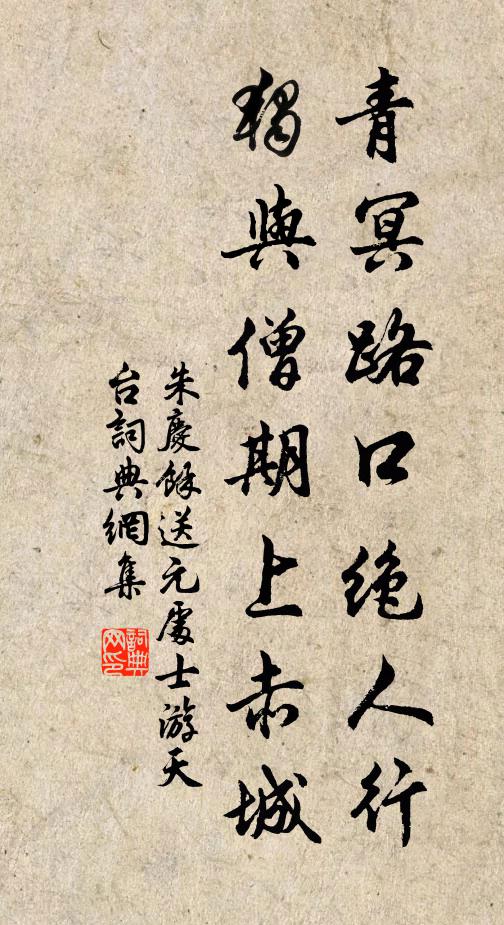 青冥路口绝人行
獨與僧期上赤城
朱慶餘送元處士游天
台詞典網集
詞典网印